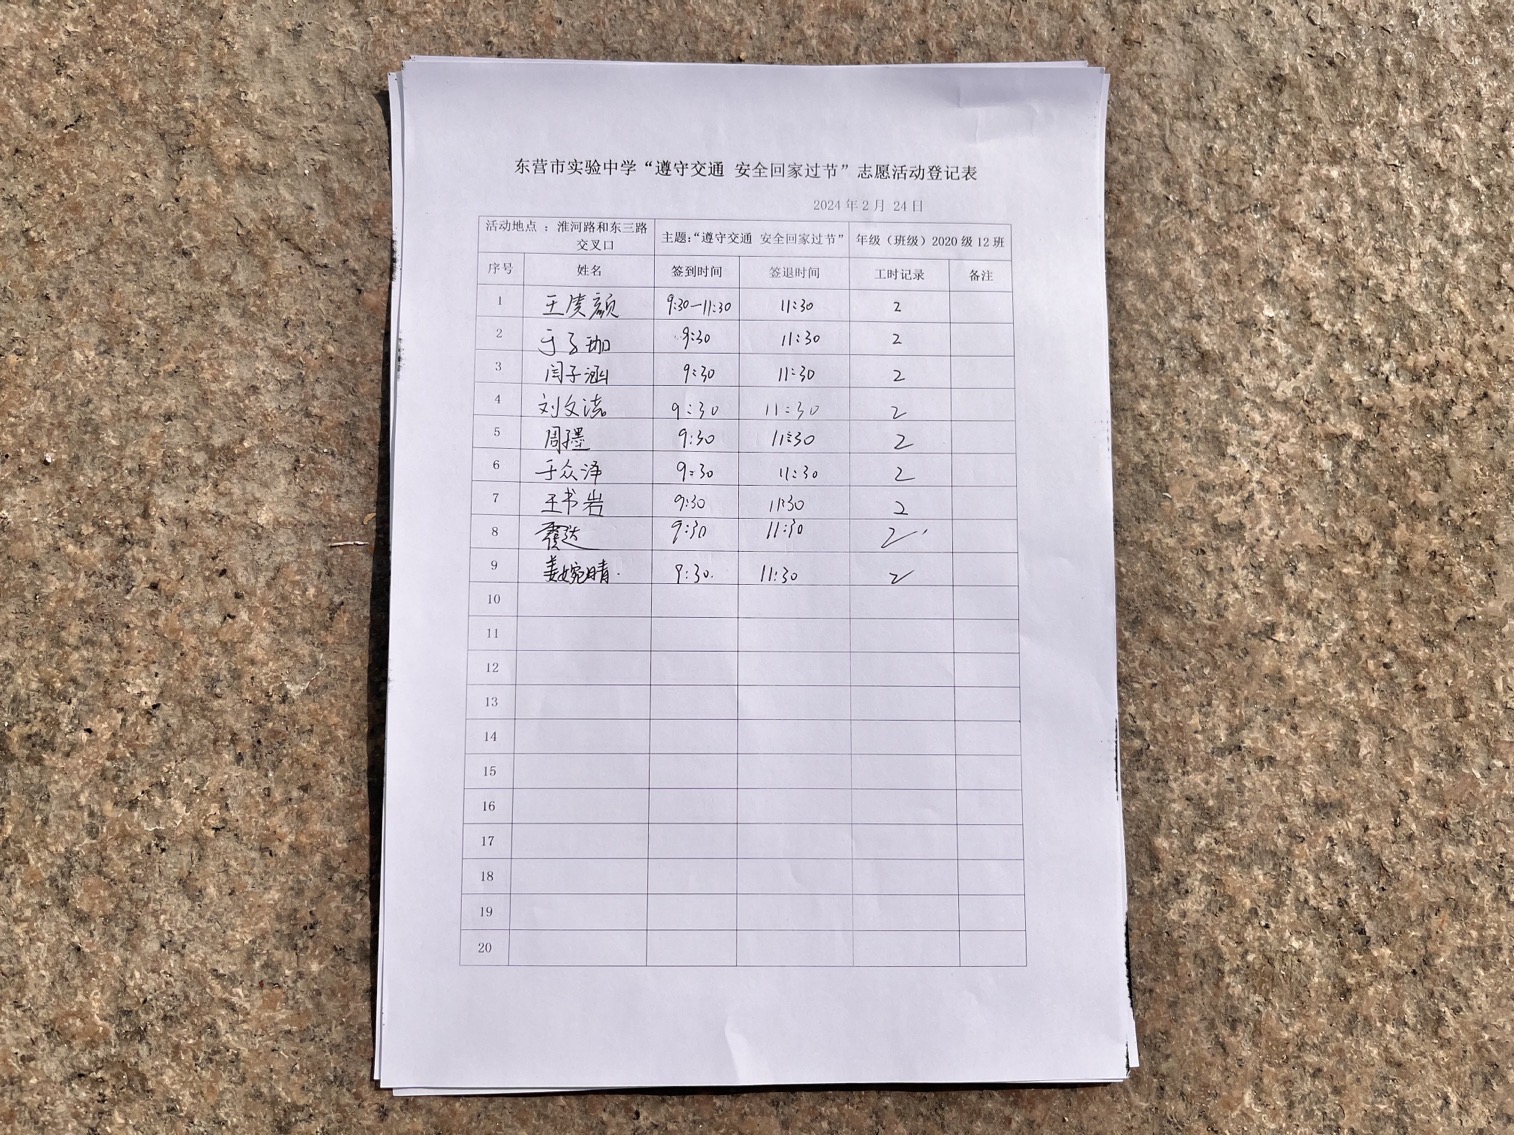 东营市实验中学“遵守交通 安全回家过节”志愿活动登记表
2024 年 2 月 24 日
活动地点 ：淮河路和东三路交叉口 主题：“遵守交通 安全回家过节” 年级（班级）2020 级 12 班
序号 姓名 签到时间 签退时间 工时记录 备注
1 王虔颜 9:30—11:30 11:30 2
2 于子珈 9:30 11:30 2
3 闫子涵 9:30 11:30 2
4 刘文洁 9:30 11:30 2
5 周墨 9:30 11:30 2
6 于众泽 9:30 11:30 2
7 王书岩 9:30 11:30 2
8 9:30 11:30 2
9 姜婉晴 9:30 11:30 2
10
11
12
13
14
15
16
17
18
19
20